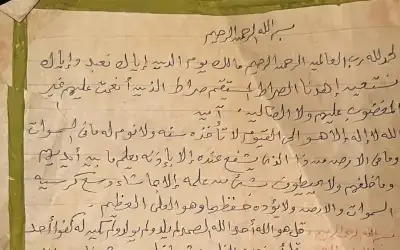 بسم الله الرحمن الرحيم
الحمد لله رب العالمين الرحمن الرحيم مالك يوم الدين إياك نعبد وإياك
نستعين إهدنا الصراط المستقيم صراط الذين أنعمت عليهم غير
المغضوب عليهم ولا الضالين آمين
الله لا إله إلا هو الحي القيوم لا تأخذه سنة ولا نوم له ما في السموات
وما في الارض من ذا الذي يشفع عنده إلا بإذنه يعلم ما بين أيديهم
وما خلفهم ولا يحيطون بشئ من علمه إلا بما شاء وسع كرسيه
السموات والارض ولا يؤده حفظهما وهو العلي العظيم
قل هو الله أحد الله الصمد لم يلد ولم يولد ولم يكن له كفوا أحد